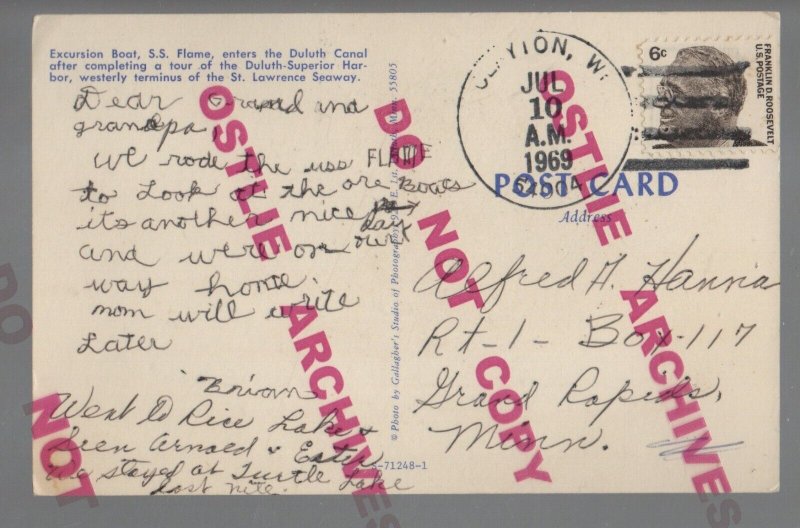 Excursion Boat, S.S. Flame, enters the Duluth Canal
after completing a tour of the Duluth-Superior Har-
bor, westerly terminus of the St. Lawrence Seaway.
Dear Grand and
grandpa,
We rode the uss FLAME
to Look at the ore Boats
its another nice day
and were on our
way home.
mom will write
Later
Brian
Went to Rice Lake &
Seen Arnold & Ester
We stayed at Turtle Lake
last nite.
© Photo by Gallagher's Studio of Photography, E. 1st, Minn. 55805
S-71248-1
CLAYTON, W
JUL
10
A.M.
1969
6c
FRANKLIN D. ROOSEVELT
U.S. POSTAGE
POST CARD
Address
Alfred H. Hanna
Rt-1- Box-117
Grand Rapids,
Minn.
OSTLIE ARCHIVES
DO NOT COPY
OSTLIE ARCHIVES
DO NOT